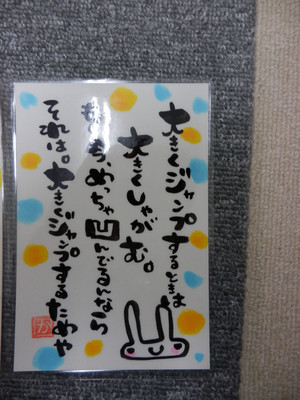 大きくジャンプするときは
大きくしゃがむ。
もし今、めっちゃ凹んでるんなら
それは。大きくジャンプするためや